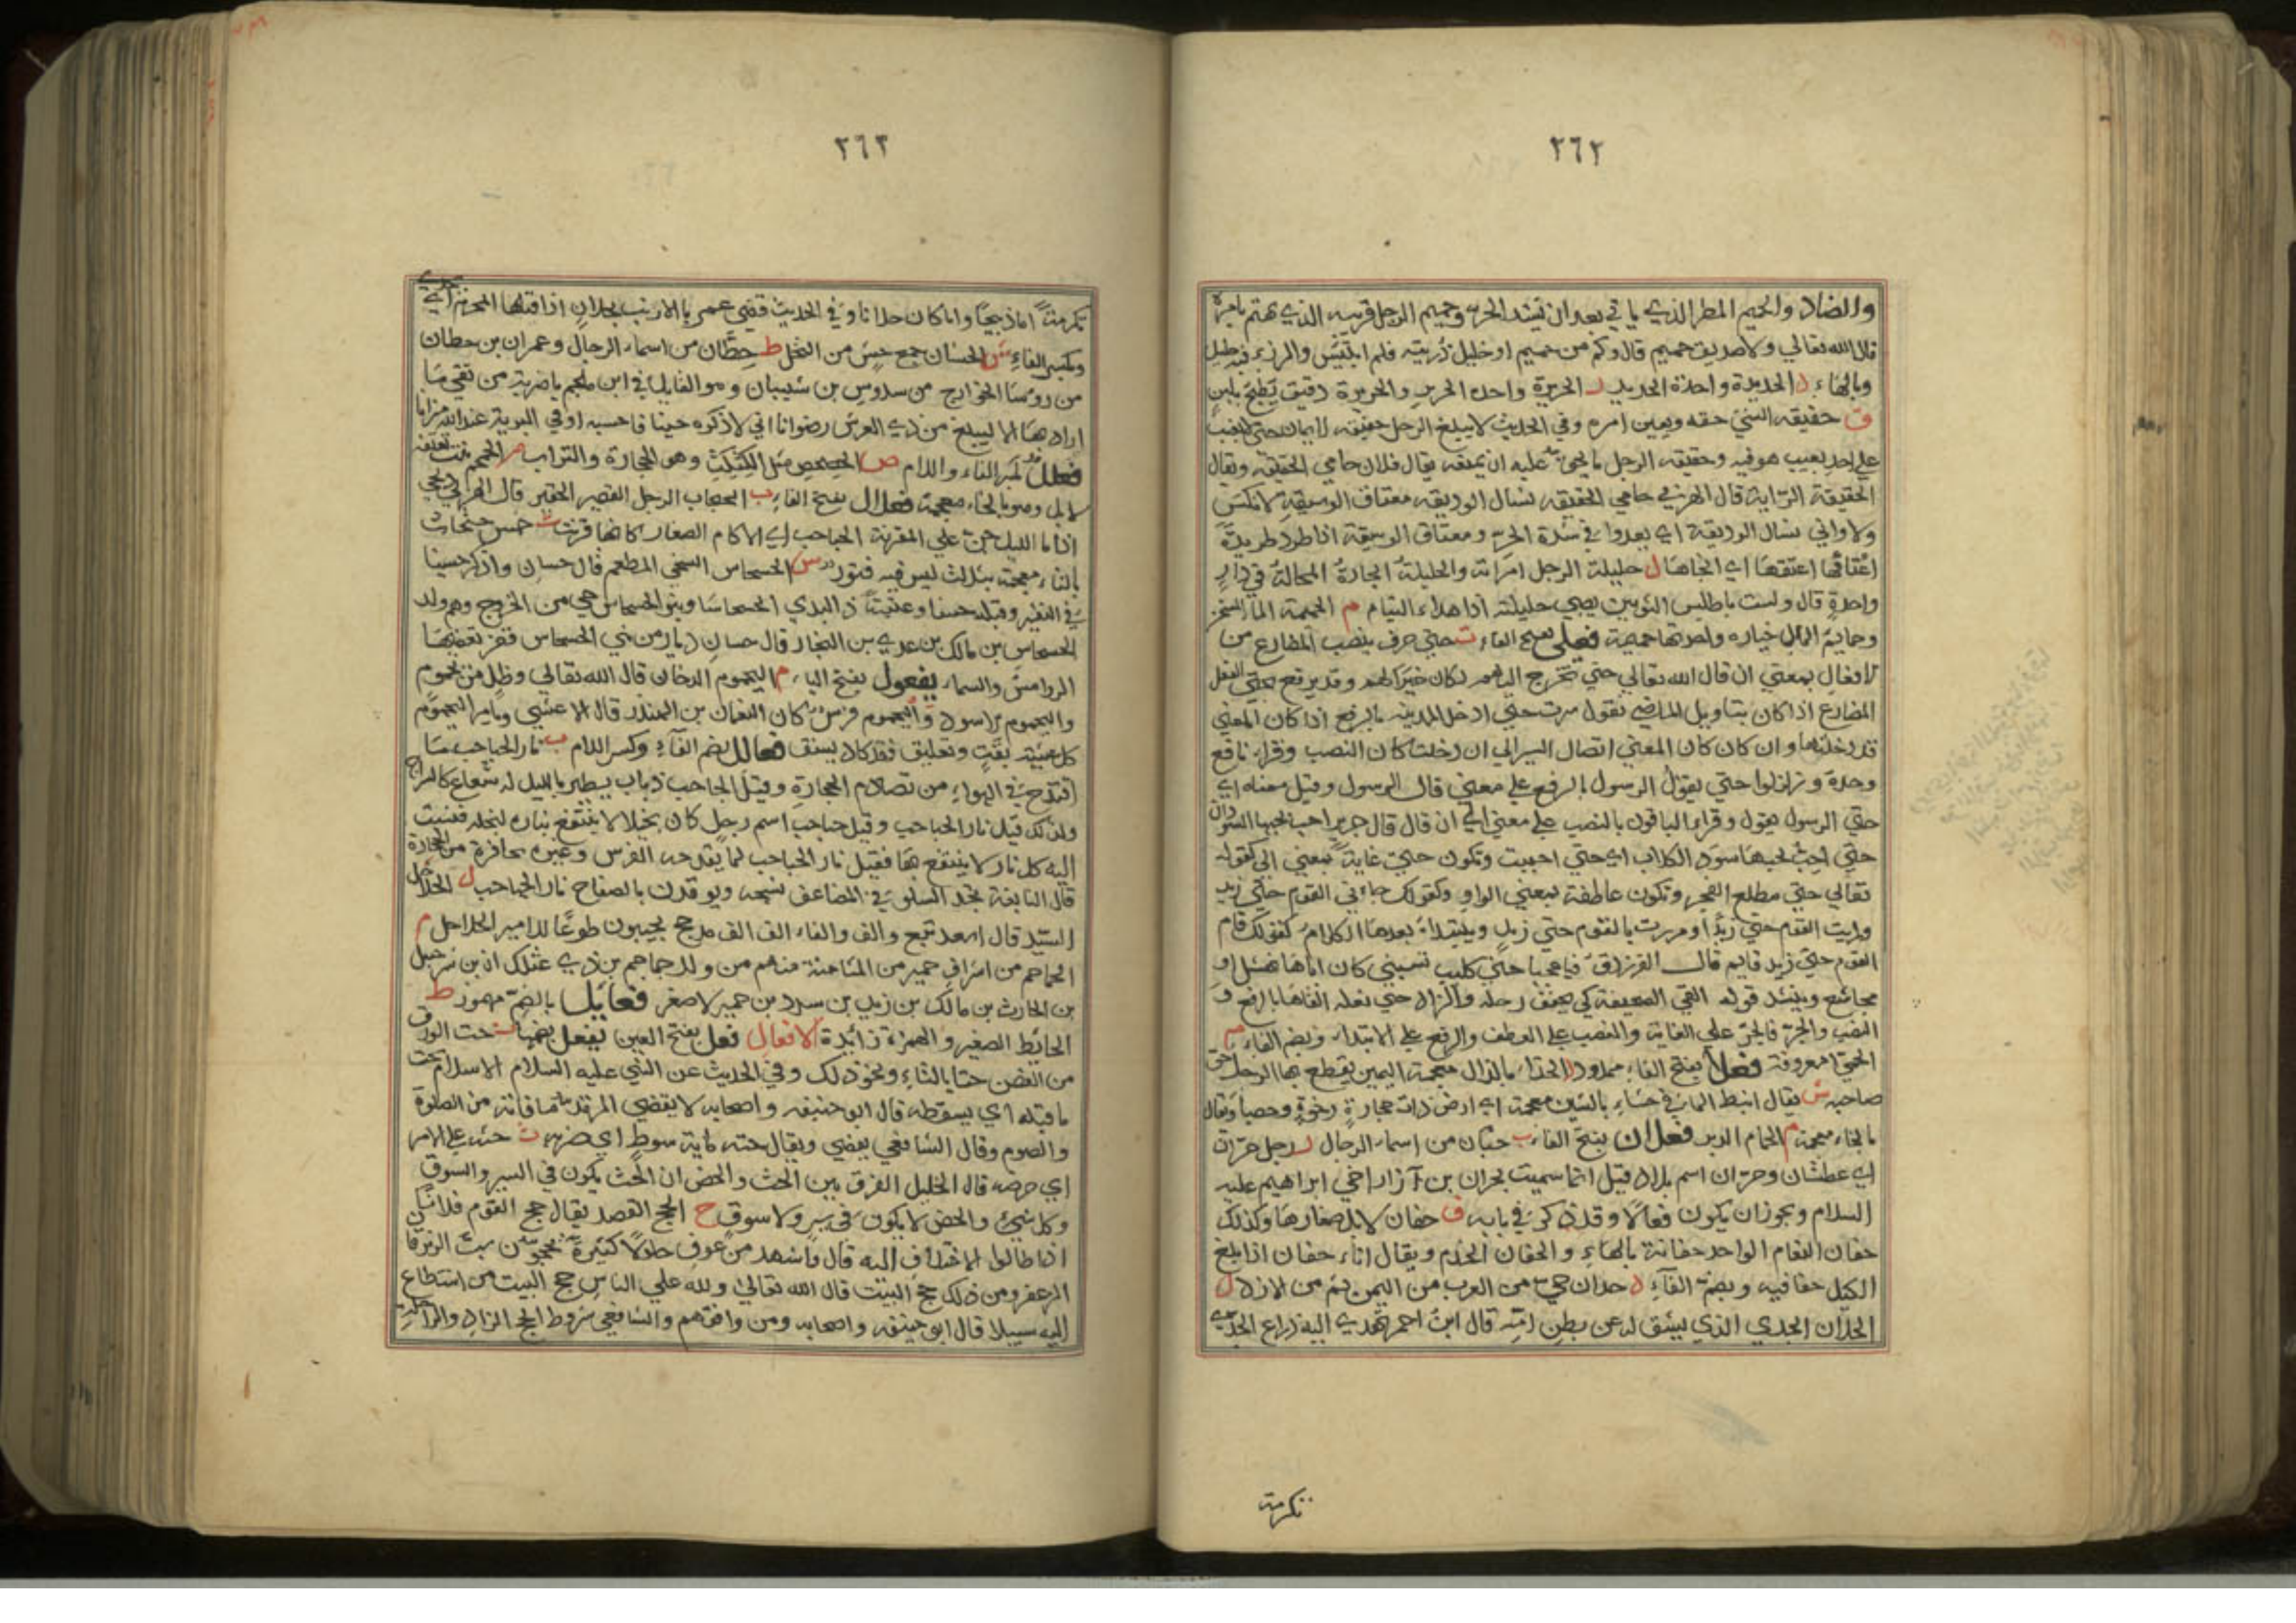 ٢٦٢
والضاد والحميم المطر الذي ياتي بعد ان تشتد الحر وحميم الرجل قريبه الذي يهتم بامره
قال الله تعالي ولا صديق حميم قال وكم من حميم او خليل رزيته فلم ابتئس والرزء فيه جليل
وبالهاء د الحديدة واحدة الحديد ر الحريرة واحدة الحرير والحريرة دقيق يطبخ بلبن
ق حقيقه الشيء حقه ويقين امره وفي الحديث لا يبلغ الرجل حقيقه الايمان حتي لا يعيب
علي احد بعيب هو فيه وحقيقه الرجل ما يحق عليه ان يمنعه يقال فلان حامي الحقيقه ويقال
الحقيقة الراية قال الهذلي حامي الحقيقه نسال الوديقه معتاق الوسيقه لا نكس
ولا واني نسال الوديقة اي يعدوا في شدة الحر ومعتاق الوسيقة اذا طرد طريدة
اعتاقها اعتقها اي انجاها ل حليلة الرجل امراته والحليلة الجارة المحالة في دار
واحدة قال ولست باطلس الثوبين يصبي حليلته اذا هدا النيام م الحميمة الما المسخن
وحايم المال خياره واحدتها حميمة فعلى بفتح الفاء ت حتي حرف ينصب المضارع من
الافعال بمعني ان قال الله تعالي حتي تخرج اليهم لكان خيرا لهم وقد يرتفع بحتي الفعل
المضارع اذا كان بتاويل الماضي تقول سرت حتي ادخل المدينه بالرفع اذا كان المعني
قد دخلتها وان كان كان المعني اتصال السير الي ان دخلت كان النصب وقرا نافع
وحده وزلزلوا حتي يقول الرسول بالرفع علي معني قال الرسول وقيل معناه اي
حتي الرسول يقول وقرا الباقون بالنصب علي معني الي ان قال قال جرير احب لحبها السودان
حتي احب لحبها سود الكلاب اي حتي احببت وتكون حتي غاية بمعني الي كقوله
تعالي حتي مطلع الفجر وتكون عاطفة بمعني الواو وكقولك جاءني القوم حتي زيد
ورايت القوم حتي زيدا ومررت بالقوم حتي زيد ويبتدا بعدها الكلام كقولك قام
القوم حتي زيد قايم قال الفرزدق فيا عجبا حتي كليب تسبني كان اباها نهشل او
مجاشع وينشد قوله القي الصحيفة كي يخفف رحله والزاد حتي نعله القاها بالرفع و
النصب والجر فالجر علي الغاية والنصب علي العطف والرفع علي الابتداء وبضم الفاء م
الحمي معروفة فعلا بفتح الفاء ممدود الحذاء بالذال معجمة اليمين يقتطع بها الرجل حق
صاحبه ش يقال انبط الما في حشاء بالشين معجمة اي ارض ذات حجارة رخوة وحصبا ويقال
بالخاء معجمة م الحمام الدبر فعلان بفتح الفاء ب حبان من اسماء الرجال ر رجل حران
اي عطشان وحران اسم بلاد قيل انما سميت بحران بن آزر اخي ابراهيم عليه
السلام ويجوز ان يكون فعالا وقد ذكر في بابه ف حفان الابل صغارها وكذلك
حفان النعام الواحد حفانة بالهاء والحفان الخدم ويقال اناء حفان اذا بلغ
الكيل حفافيه وبضم الفاء د حدان حي من العرب من اليمن ثم من الازد ل
الحلان الجدي الذي يشق له عن بطن امه قال ابن احمر تهدي اليه ذراع الجدي
تكرمة
٢٦٣
تكرمة اما ذبيحا واما كان حلانا وفي الحديث قضي عمر بالارنب بحلان اذا قتلها المحرم اي جدي
وبكسر الفاء ش الحشان جمع حش من النخل ط حطان من اسماء الرجال وعمران بن حطان
من روسا الخوارج من سدوس بن شيبان وهو القايل في ابن ملجم يا ضربة من تقي ما
اراد بها الا ليبلغ من ذي العرش رضوانا اني لاذكره حينا فاحسبه اوفي البرية عند الله ميزانا
فعلل بكسر الفاء واللام ص الحصحص مثل الكثكث وهو الحجارة والتراب م الحمحم نبت تعلفه
الابل وهو بالخاء معجمة فعلال بفتح الفاء ب الحبحاب الرجل القصير الحقير قال الهذلي دلجي
اذا ما الليل جن علي المقرنة الحباحب اي الاكام الصغار كانها قرنت ث خمس حثحاث
بالثاء معجمة بثلاث ليس فيه فتور س الحسحاس السخي المطعم قال حسان واذكر حسينا
في النفير وقبله حسنا وعتبة ذا الندي الحسحاسا وبنو الحسحاس حي من الخزرج وهم ولد
الحسحاس بن مالك بن عدي بن النجار قال حسان ديار من بني الحسحاس قفر تعفيها
الروامس والسماء يفعول بفتح الياء م اليحموم الدخان قال الله تعالي وظل من يحموم
واليحموم الاسود واليحموم فرس كان النعمان بن المنذر قال الاعشي ويامر اليحموم
كل عشية بقت وتعليق فقد كاد يسنق فعالل بضم الفاء وكسر اللام ب نار الحباحب ما
اقتدح في الهواء من تصادم الحجارة وقيل الحباحب ذباب يطير بالليل له شعاع كالسراج
ولذلك قيل نار الحباحب وقيل حباحب اسم رجل كان بخيلا لا ينتفع بناره لبخله فنسبت
اليه كل نار لا ينتفع بها فقيل نار الحباحب لما يقدحه الفرس وغيره بحافره من الحجارة
قال النابغة تجذ السلوقي المضاعف نسجه ويوقدن بالصفاح نار الحباحب ل الحلاحل
السيد قال اسعد تبع والف والفا الف الف مدجج يجيبون طوعا للامير الحلاحل م
الحماحم من اشراف حمير من المثامنة منهم من ولد حماحم بن ذي عثكلان بن شرحبيل
بن الحارث بن مالك بن زيد بن سدد بن حمير الاصغر فعايل بالضم مهموز ط
الحائط الصغير والهمزة زائدة الافعال فعل بفتح العين يفعل بضمها ت حت الورق
من الغصن حتا بالتاء ونحو ذلك وفي الحديث عن النبي عليه السلام الاسلام يحت
ما قبله اي يسقطه قال ابو حنيفه واصحابه لا يقضي المرتد ما فاته من الصلوة
والصوم وقال الشافعي يقضي ويقال حته ماية سوط اي ضربه ث حثه علي الامر
اي حرضه قال الخليل الفرق بين الحث والحض ان الحث يكون في السير والسوق
وكل شيء والحض لا يكون في سير ولا سوق ح الحج القصد يقال حج القوم فلانا
اذا طالوا الاختلاف اليه قال واشهد من عوف حلولا كثيرة يحجون سب الزبرقان
المزعفر ومن ذلك حج البيت قال الله تعالي ولله علي الناس حج البيت من استطاع
اليه سبيلا قال ابو حنيفه واصحابه ومن وافقهم والشافعي شروط الحج الزاد والراحلة